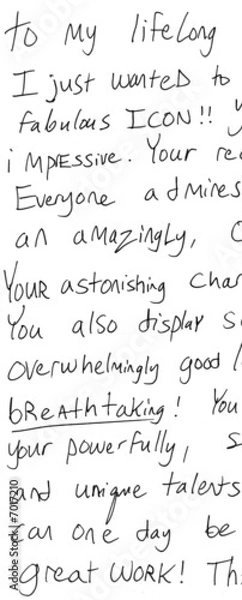 to my lifelong
I just wanted to
fabulous ICON!!
impressive. Your
Everyone admires
an amazingly,
Your astonishing
You also display
overwhelmingly good
breathtaking! You
your powerfully,
and unique talents
can one day be
great WORK!
Adobe Stock | #7017210